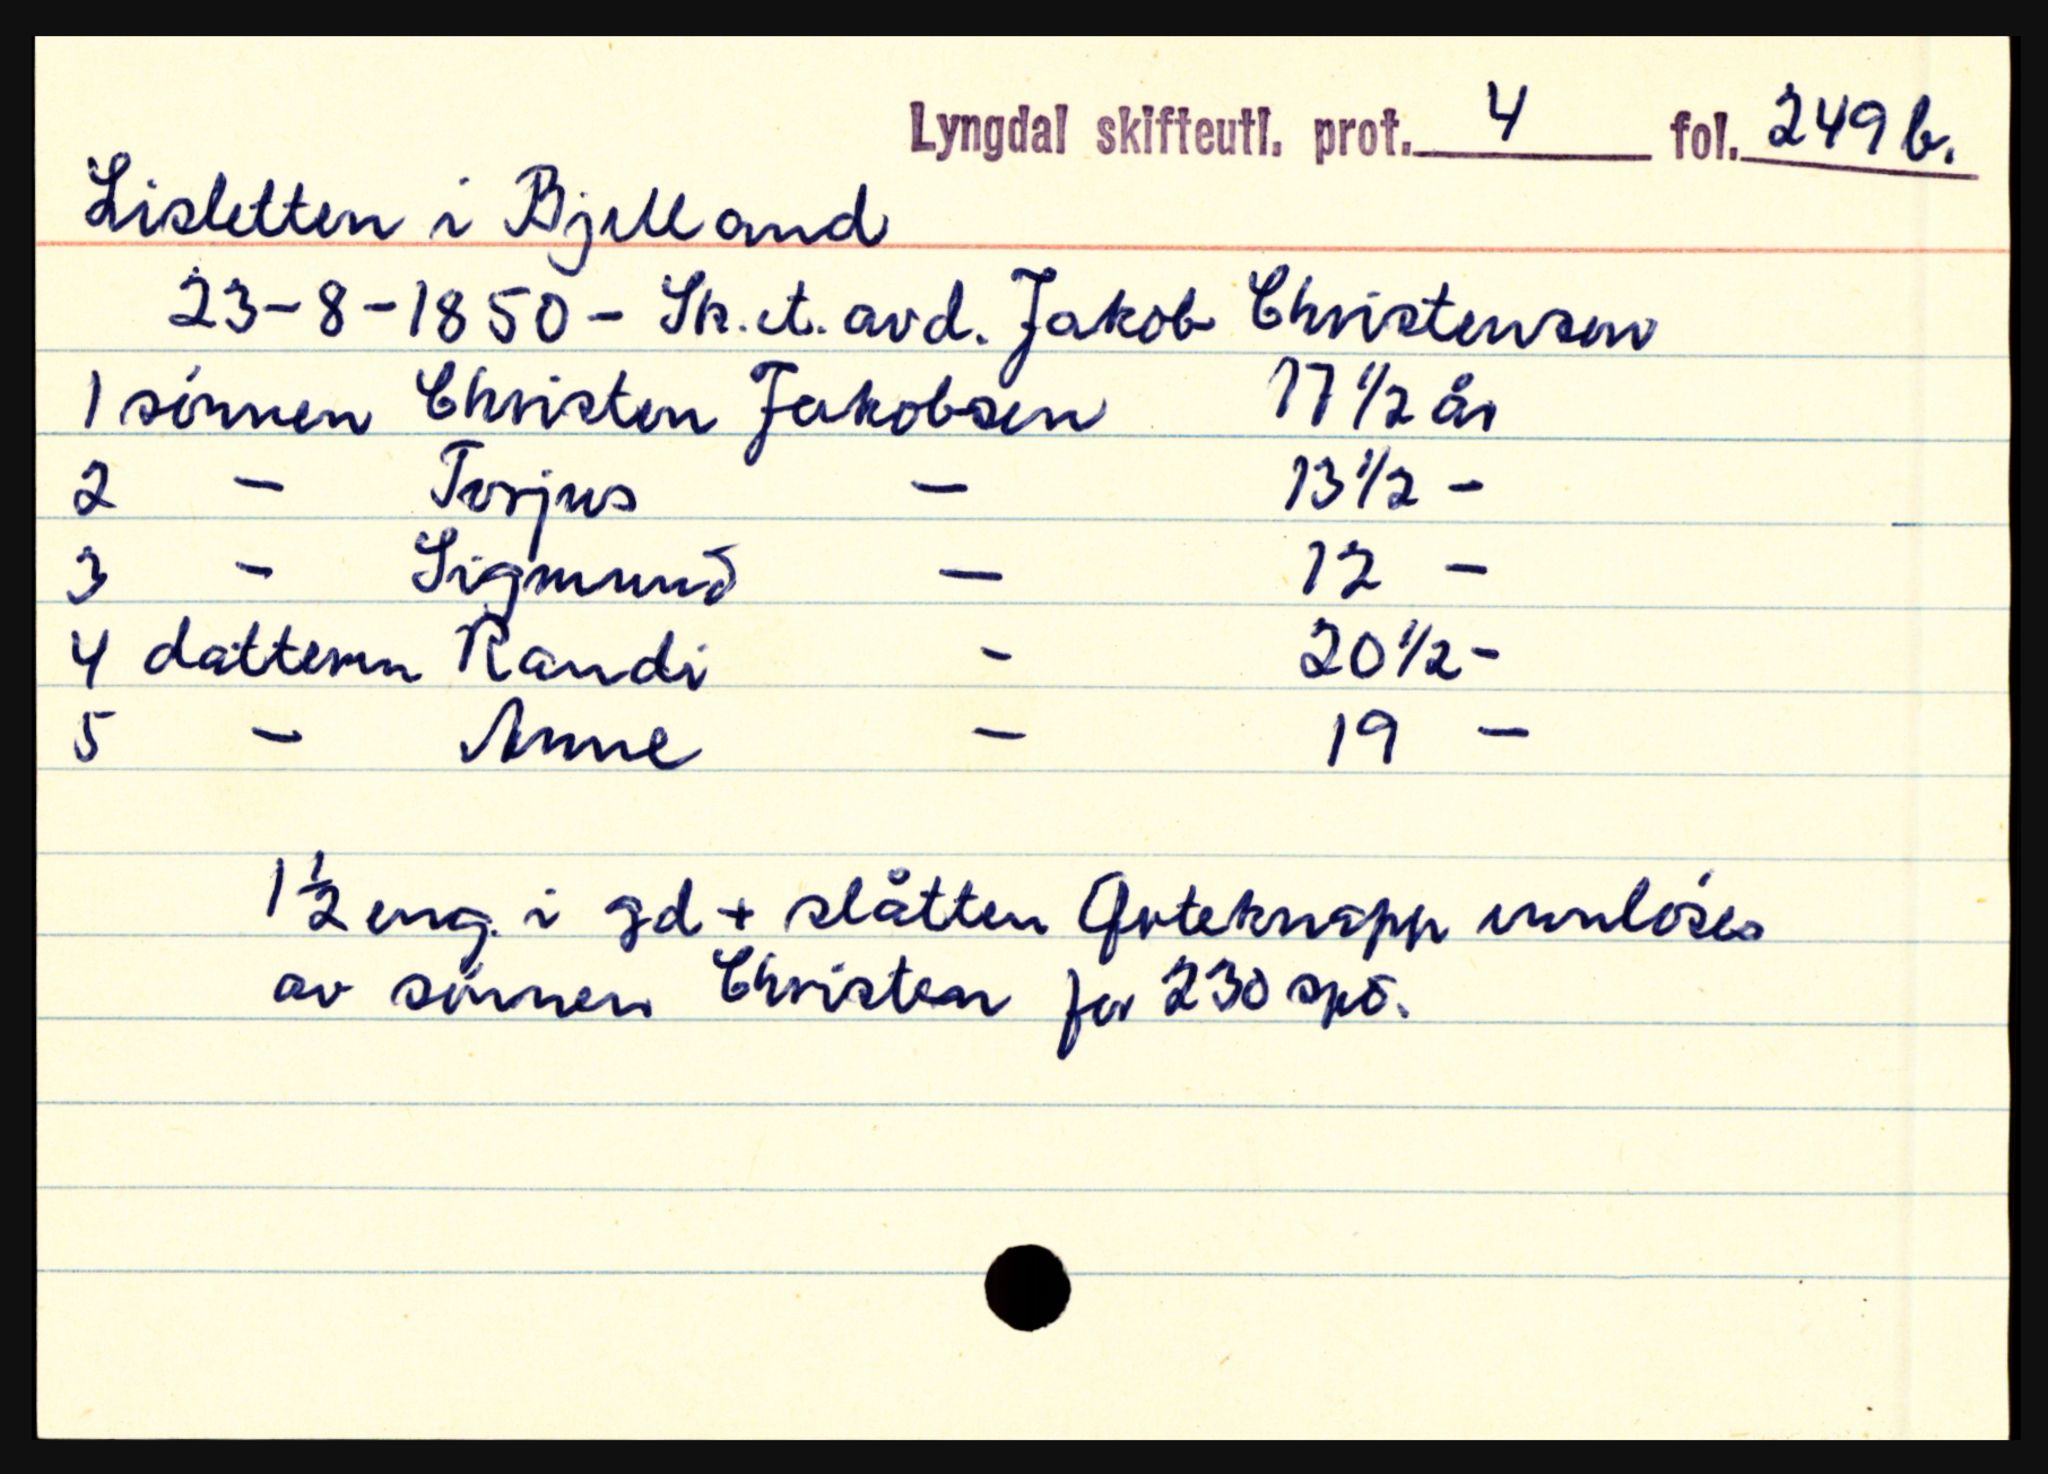 Lyngdal skifteutl. prot. 4 fol. 249 b.
Lisletten i Bjelland
23-8-1850 - Sk. et. avd. Jakob Christensen
1 sønnen Christen Jakobsen 17 1/2 år
2 - Torjus - 13 1/2 -
3 - Sigmund - 12 -
4 datteren Randi - 20 1/2 -
5 - Anne - 19 -
1 1/2 eng. i gd + slåtten innløses
av sønnen Christen for 230 spd.